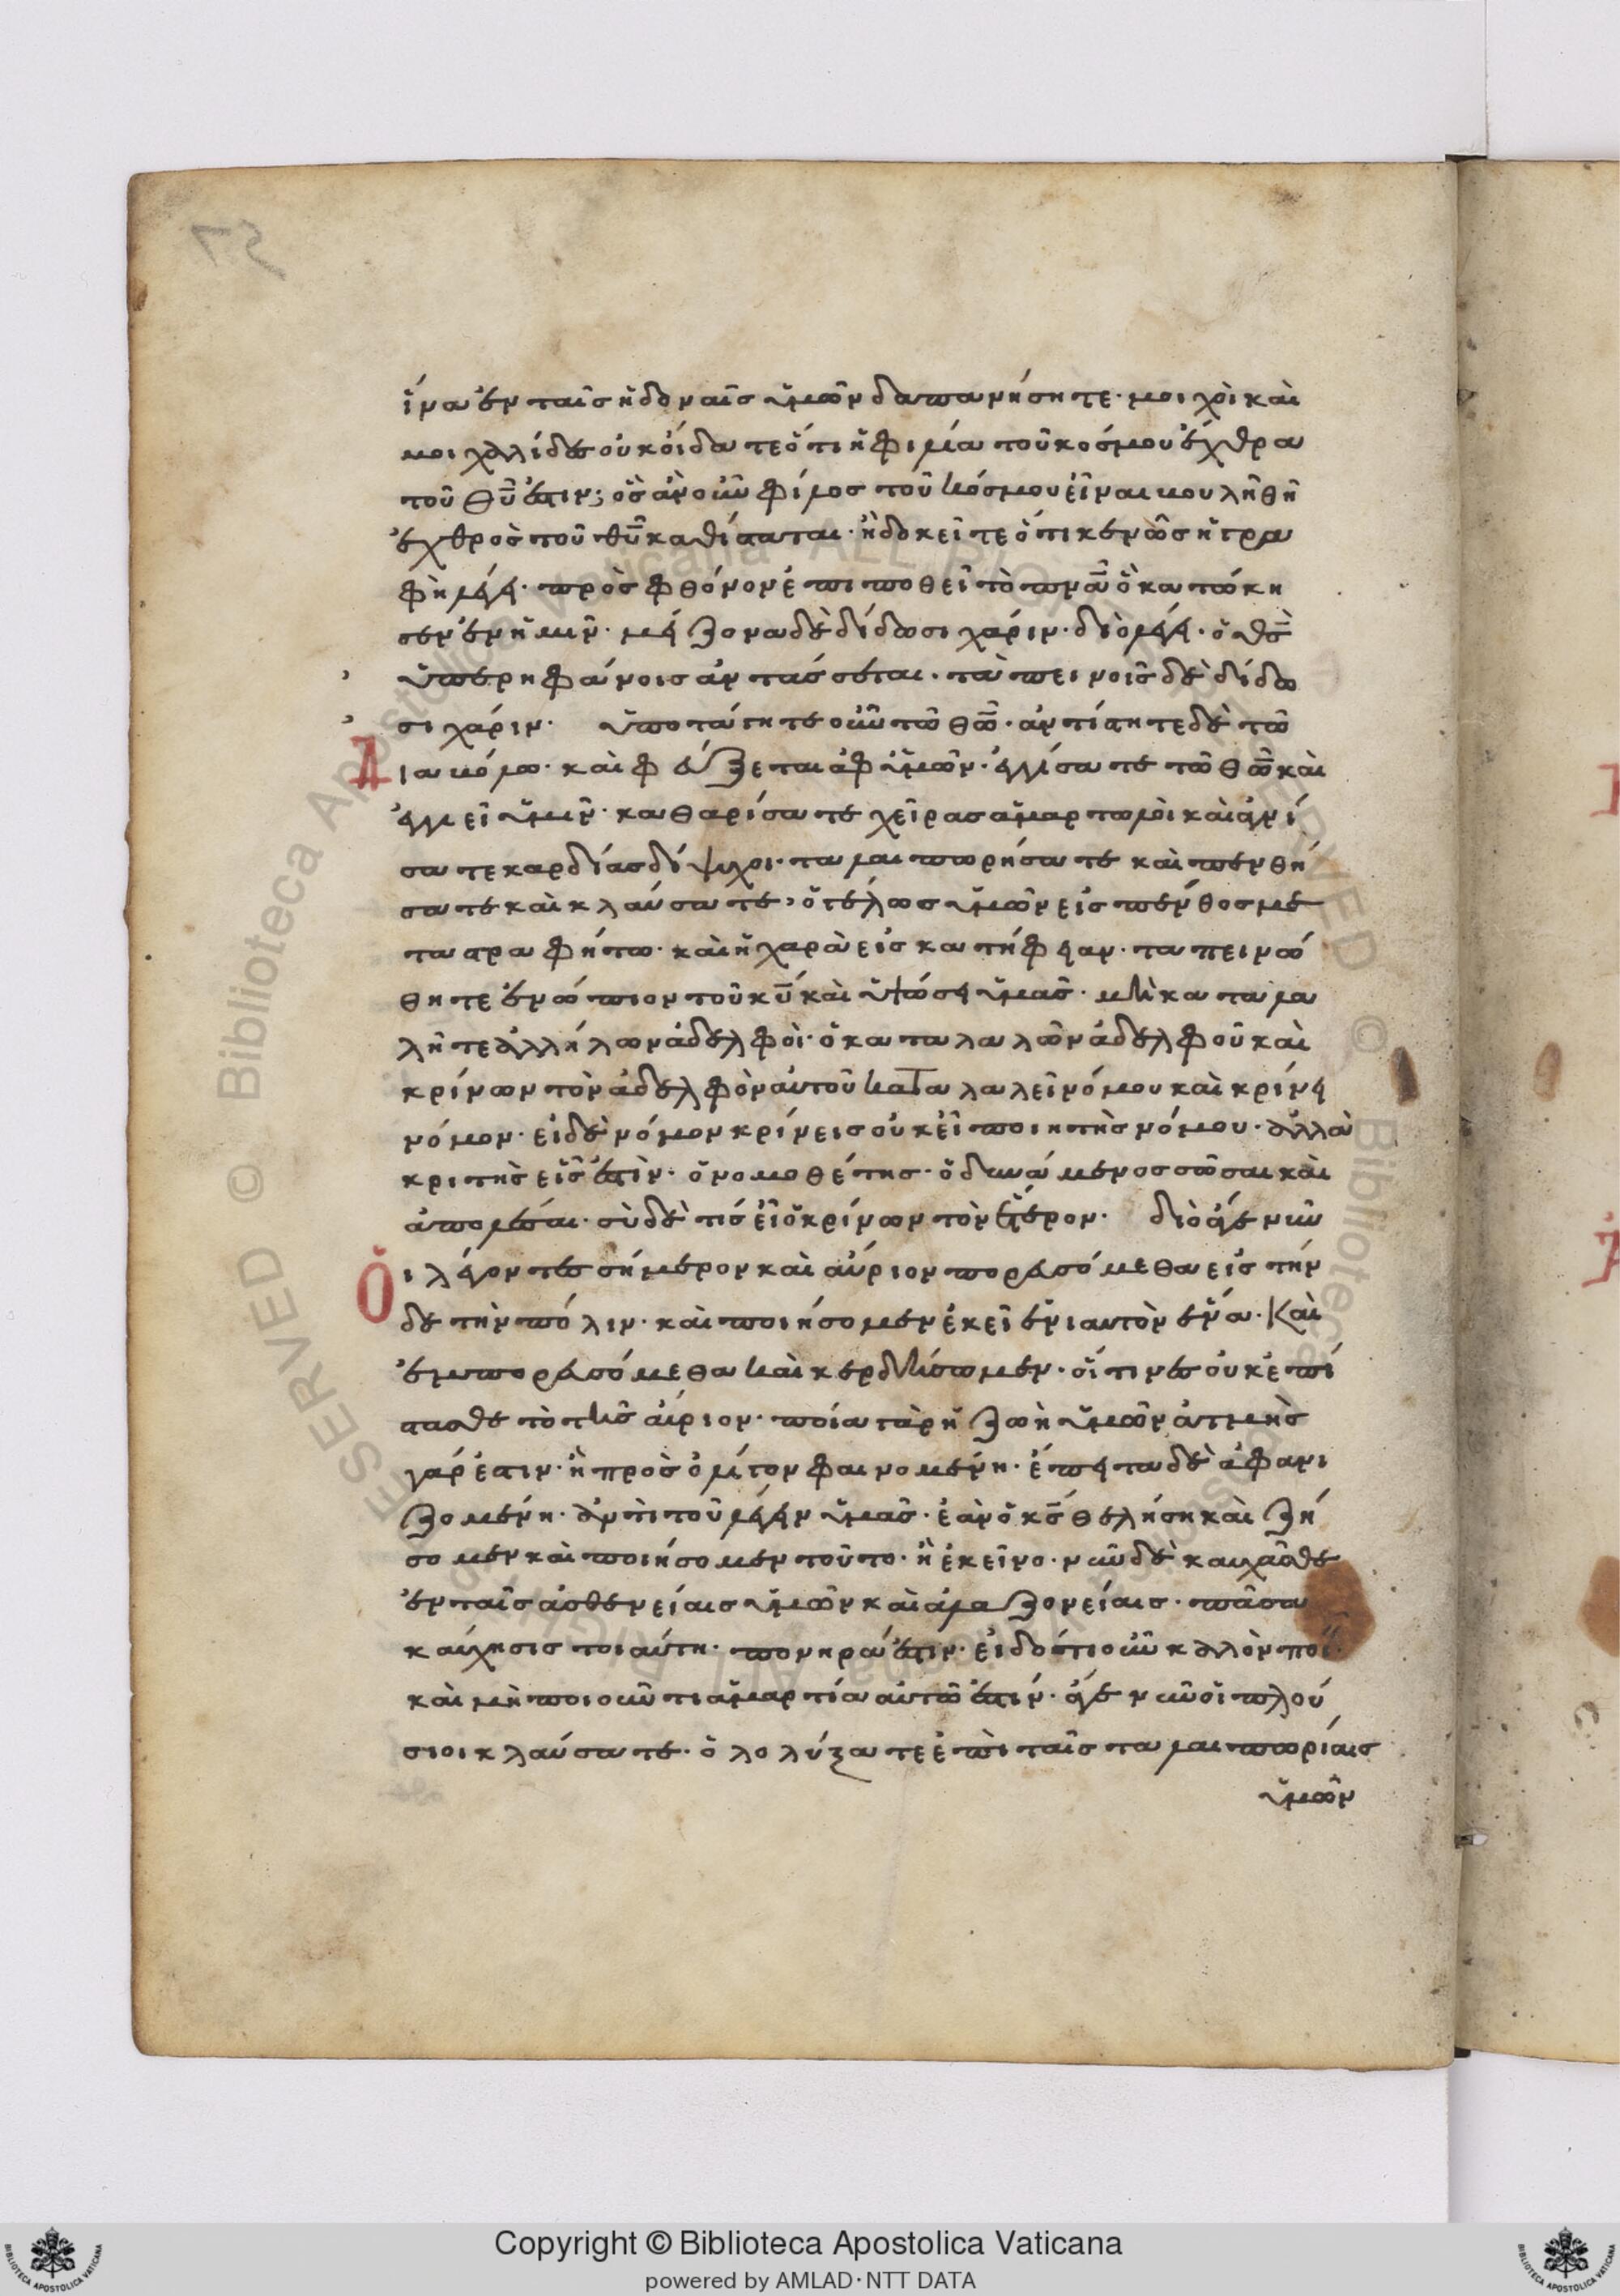 ἵνα ἐν ταῖς ἡδοναῖς ὑμῶν δαπανήσητε· μοιχοὶ καὶ
μοιχαλίδες οὐκ οἴδατε ὅτι ἡ φιλία τοῦ κόσμου ἔχθρα
τοῦ θῦ ἐστιν; ὃς ἂν οὖν φίλος τοῦ κόσμου εἶναι βουληθῆ
ἐχθρὸς τοῦ θῦ καθίσταται· ἢ δοκεῖτε ὅτι κενῶς ἡ γρα
φὴ λέγει· πρὸς φθόνον ἐπιποθεῖ τὸ πνᾶ ὃ κατώκη
σεν ἐν ἡμῖν· μείζονα δὲ δίδωσι χάριν· διὸ λέγει· ὁ θς
ὑπερηφάνοις ἀντιτάσσεται· ταπεινοῖς δὲ δίδω
σι χάριν· ὑποτάγητε οὖν τῶ θῶ· ἀντίστητε δὲ τῶ
Διαβόλω· καὶ φεύξεται ἀφ ὑμῶν· ἐγγίσατε τῶ θῶ καὶ
ἐγγιεῖ ὑμῖν· καθαρίσατε χεῖρας ἁμαρτωλοὶ καὶ ἁγνί
σατε καρδίας δίψυχοι· ταλαιπωρήσατε καὶ πενθή
σατε καὶ κλαύσατε· ὁ γέλως ὑμῶν εἰς πένθος με
ταστραφήτω· καὶ ἡ χαρὰ εἰς κατήφειαν· ταπεινώ
θητε ἐνώπιον τοῦ κῦ καὶ ὑψώσει ὑμᾶς· μὴ καταλα
λῆτε ἀλλήλων ἀδελφοὶ· ὁ καταλαλῶν ἀδελφοῦ καὶ
κρίνων τὸν ἀδελφὸν αὐτοῦ καταλαλεῖ νόμου καὶ κρίνει
νόμον· εἰ δὲ νόμον κρίνεις οὐκ εἶ ποιητὴς νόμου· ἀλλὰ
κριτὴς εἷς ἐστὶν· ὁ νομοθέτης· ὁ δυνάμενος σῶσαι καὶ
ἀπολέσαι· σὺ δὲ τίς εἶ ὁ κρίνων τὸν ἕτερον· διὸ ἄγε νῦν
Οἱ λέγοντες σήμερον καὶ αὔριον πορευσόμεθα εἰς τήν
δε τὴν πόλιν· καὶ ποιήσομεν ἐκεῖ ἐνιαυτὸν ἕνα· Καὶ
ἐμπορευσόμεθα καὶ κερδήσωμεν· οἵτινες οὐκ ἐπί
στασθε τὸ τῆς αὔριον· ποία γὰρ ἡ ζωὴ ὑμῶν ἀτμὴς
γάρ ἐστιν· ἡ πρὸς ὀλίγον φαινομένη· ἔπειτα δὲ ἀφανι
ζομένη· ἀντὶ τοῦ λέγειν ὑμᾶς· ἐὰν ὁ κς θελήση καὶ ζή
σομεν καὶ ποιήσομεν τοῦτο· ἢ ἐκεῖνο· νῦν δὲ καυχᾶσθε
ἐν ταῖς ἀσθενείαις ὑμῶν καὶ ἀλαζονείαις· πᾶσα
καύχησις τοιαύτη· πονηρά ἐστιν· εἰδότι οὖν καλὸν ποι·
καὶ μὴ ποιοῦντι ἁμαρτία αὐτῶ ἐστιν· ἄγε νῦν οἱ πλού
σιοι κλαύσατε· ὀλολύζατε ἐπὶ ταῖς ταλαιπωρίαις
ὑμῶν
Copyright © Biblioteca Apostolica Vaticana
powered by AMLAD·NTT DATA